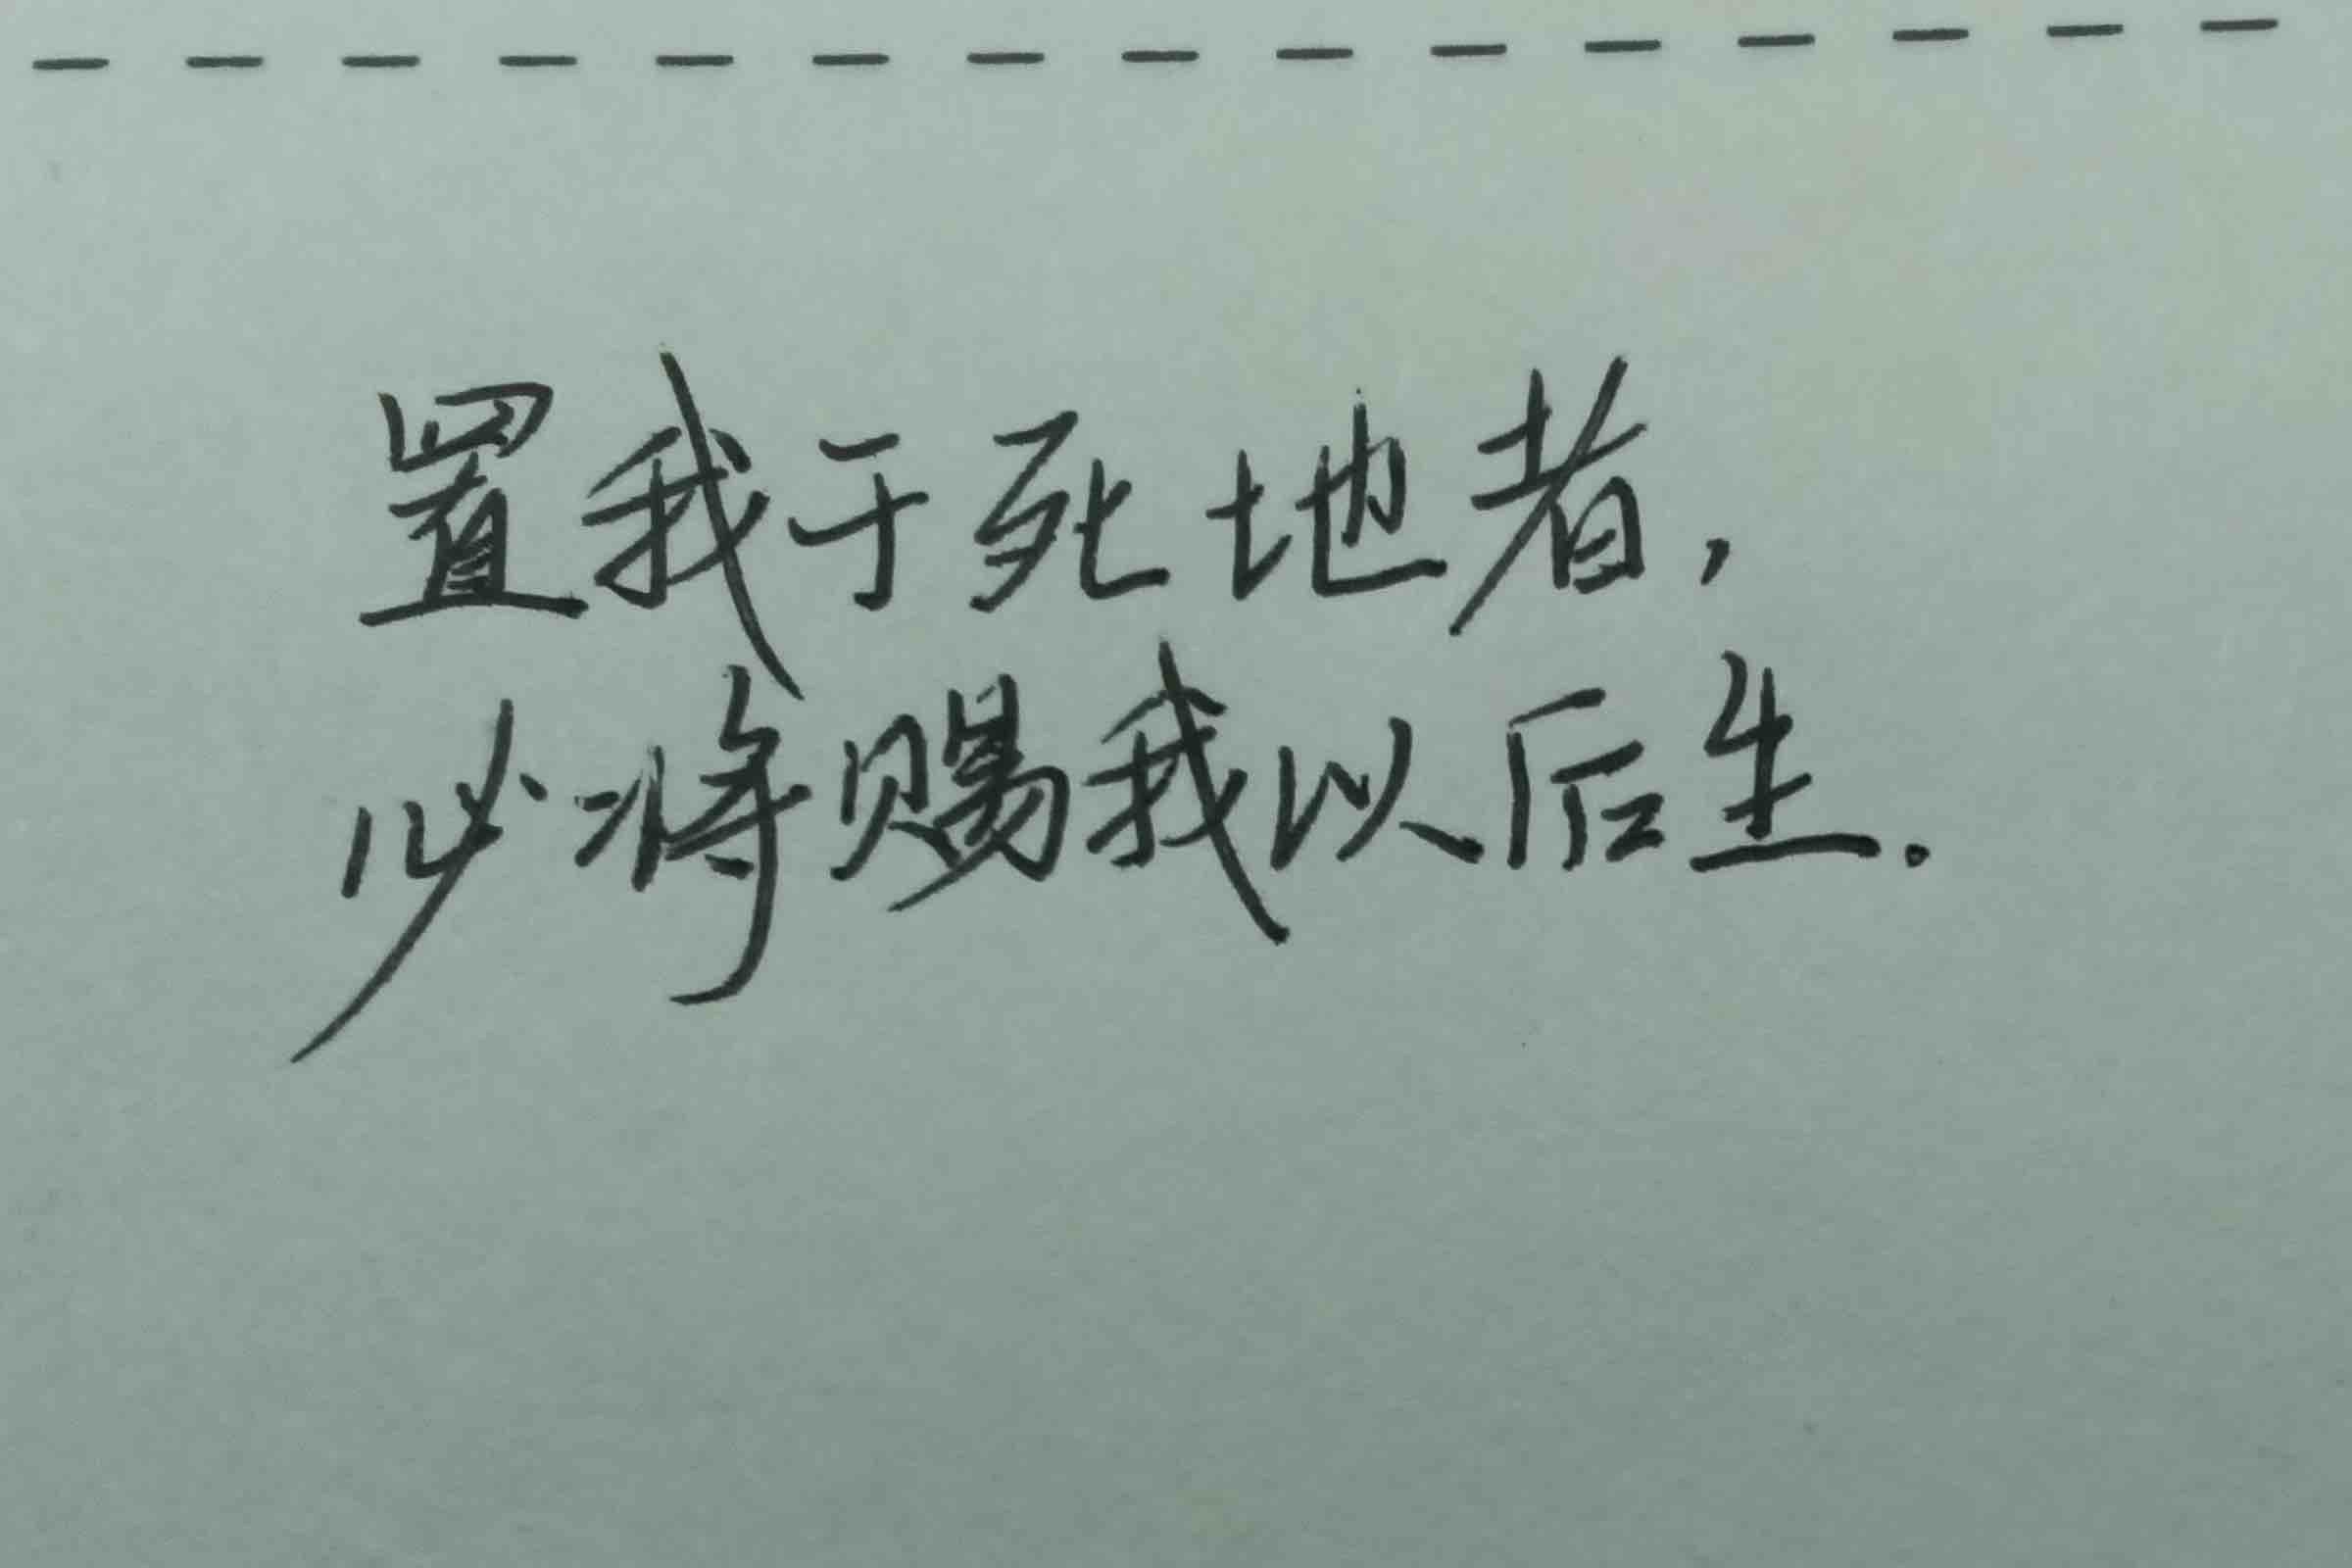 置我于死地者,
必将赐我以后生.